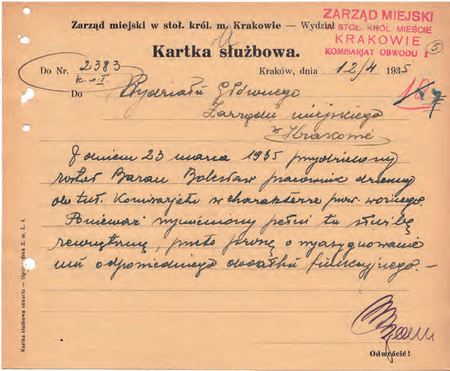 Zarząd miejski w stoł. król. m. Krakowie — Wydział
ZARZĄD MIEJSKI
W STOŁ. KRÓL. MIEŚCIE
KRAKOWIE
KOMISARJAT OBWODU I
5
Kartka służbowa.
Do Nr. 2383
Kraków, dnia 12/4 1935
Do Wydziału Głównego
Zarządu miejskiego
w Krakowie
Z dniem 23 marca 1935 przydzielony
został Baran Bolesław pracownik dzienny
do tut. Komisarjatu w charakterze pom. woźnego.
Ponieważ wymieniony pełni tu służbę
zewnętrzną, proszę o wyasygnowanie
mu odpowiedniego dodatku funkcyjnego.—
Odwrócić!
Kartka służbowa otwarta — Ogólny druk Z. m. L. 2.